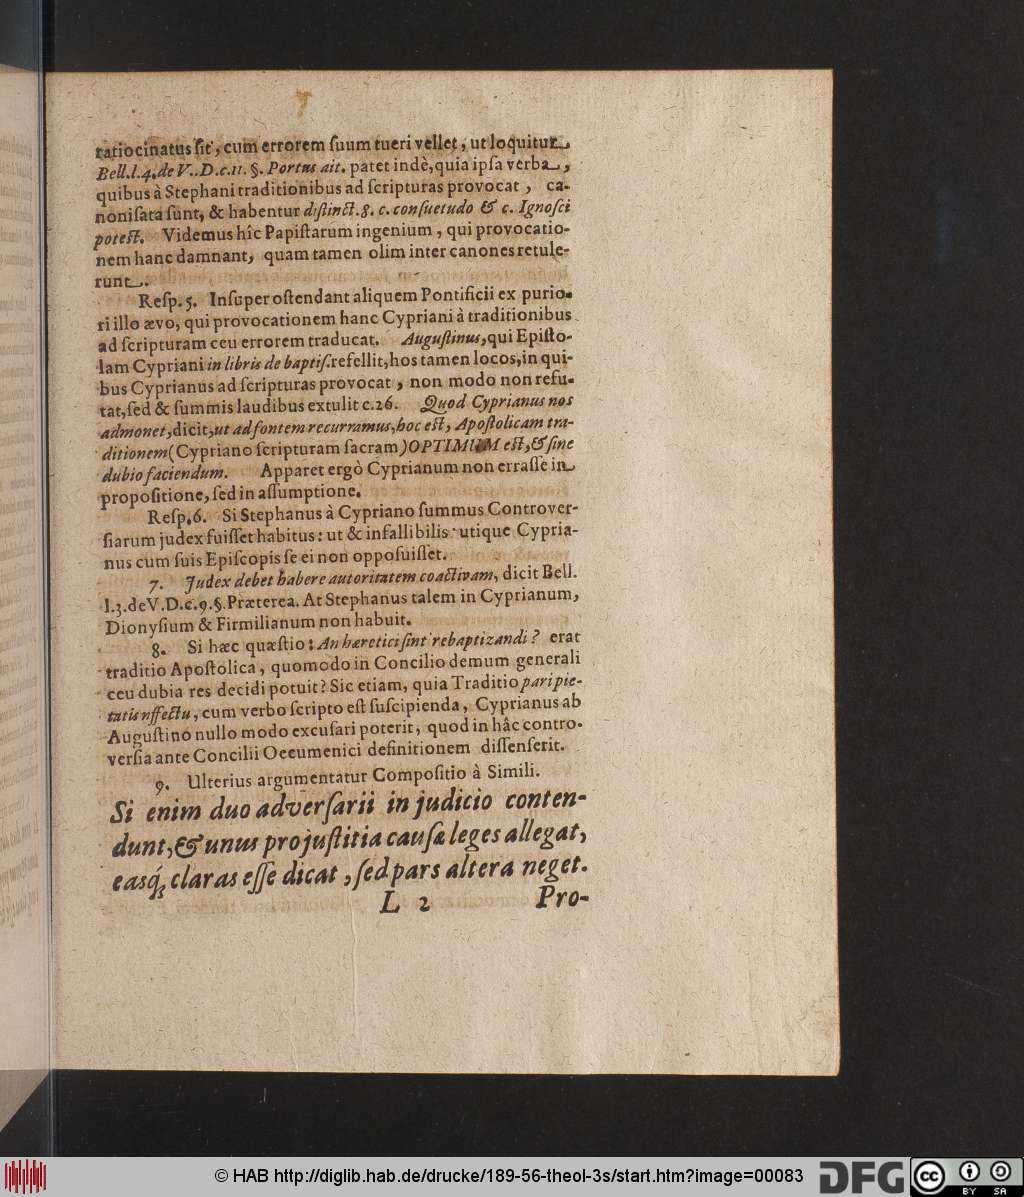 ratiocinatus ſit, cum errorem ſuum tueri vellet, ut loquitur
Bell. l. 4. de V.. D. c. 11. §. Portus ait. patet indè, quia ipſa verba,
quibus à Stephani traditionibus ad ſcripturas provocat, ca-
noniſata ſunt, & habentur diſtinct. 8. c. conſuetudo & c. Ignoſci
poteſt. Videmus hîc Papiſtarum ingenium, qui provocatio-
nem hanc damnant, quam tamen olim inter canones retule-
runt.
Reſp. 5. Inſuper oſtendant aliquem Pontificii ex purio-
ri illo ævo, qui provocationem hanc Cypriani à traditionibus
ad ſcripturam ceu errorem traducat. Auguſtinus, qui Epiſto-
lam Cypriani in libris de baptiſ. refellit, hos tamen locos, in qui-
bus Cyprianus ad ſcripturas provocat, non modo non refu-
tat, ſed & ſummis laudibus extulit c. 26. Quod Cyprianus nos
admonet, dicit, ut ad fontem recurramus, hoc eſt, Apoſtolicam tra-
ditionem (Cypriano ſcripturam ſacram) OPTIMUM eſt, & ſine
dubio faciendum. Apparet ergò Cyprianum non erraſſe in
propoſitione, ſed in aſſumptione.
Reſp. 6. Si Stephanus à Cypriano ſummus Controver-
ſiarum judex fuiſſet habitus: ut & infallibilis utique Cypria-
nus cum ſuis Epiſcopis ſe ei non oppoſuiſſet.
7. Judex debet habere autoritatem coactivam, dicit Bell.
l. 3. de V. D. c. 9. §. Præterea. At Stephanus talem in Cyprianum,
Dionyſium & Firmilianum non habuit.
8. Si hæc quæſtio: An hæretici ſint rebaptizandi? erat
traditio Apoſtolica, quomodo in Concilio demum generali
ceu dubia res decidi potuit? Sic etiam, quia Traditio pari pie-
tatis affectu, cum verbo ſcripto eſt ſuſcipienda, Cyprianus ab
Auguſtino nullo modo excuſari poterit, quod in hâc contro-
verſia ante Concilii Oecumenici definitionem diſſenſerit.
9. Ulterius argumentatur Compoſitio à Simili.
Si enim duo adverſarii in judicio conten-
dunt, & unus pro juſtitia cauſæ leges allegat,
easq́; claras eſſe dicat, ſed pars altera neget.
L 2 Pro-
© HAB http://diglib.hab.de/drucke/189-56-theol-3s/start.htm?image=00083 DFG cc BY SA